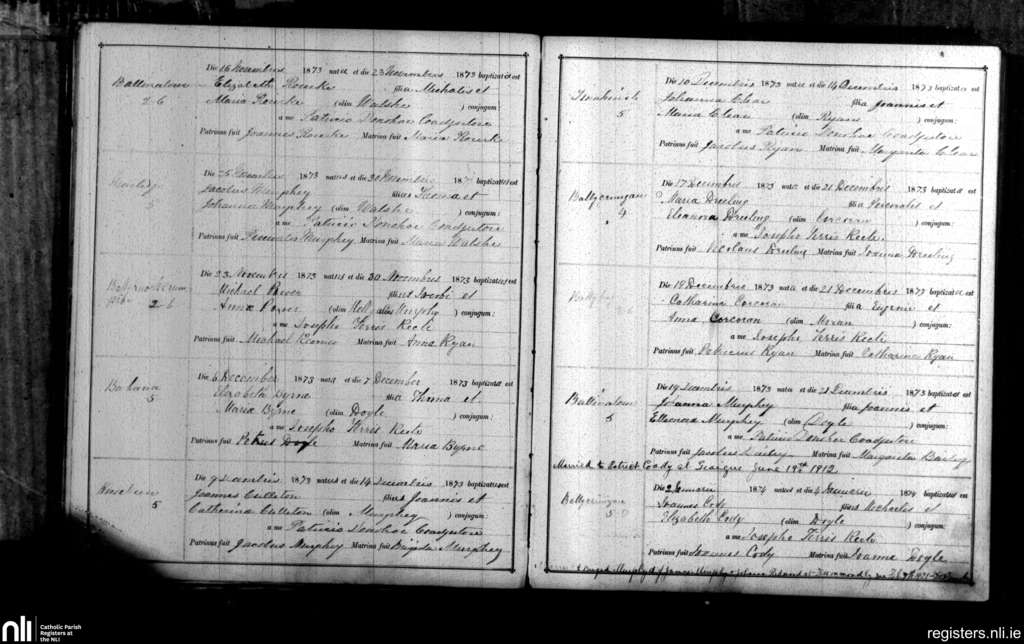 Die 16 Novembris 1873 nata et die 23 Novembris 1873 baptizata est
Ballinatone Elizabeth Rourke filia Michalis et
Maria Rourke (olim Walshe ) conjugum:
a me Patricio Donohoe Coadjutore
Patrinus fuit Joannes Rourke Matrina fuit Maria Rourke
Die 25 natus et die 30 Novembris 187 baptizatus est
Jacobus Murphey filius Thomae et
Johanna Murphey (olim Walshe ) conjugum:
a me Patricio Donohoe Coadjutore
Patrinus fuit Murphey Matrina fuit Maria Walshe
Die 23 Novembris 1873 natus et die 30 Novembris 1873 baptizatus est
Michael Power filius et
2 6
Anna Power alias Murphy ) conjugum:
a me Josepho Ferris Recte
Patrinus fuit Michael Matrina fuit Anna Ryan
Die 6 December 1873 nata et die 7 December 1873 baptizata est
Elizabeta Byrne filia Thoma et
5
Maria Byrne (olim Doyle ) conjugum:
a me Josepho Ferris Recte
Patrinus fuit Petrus Doyle Matrina fuit Maria Byrne
Die 9 Decembris 1873 natus et die 14 Decembris 1873 baptizatus est
Joannes Culleton filius Joannis et
5
Catherina Culleton (olim Murphey ) conjugum:
a me Patricio Donohoe Coadjutore
Patrinus fuit Jacobus Murphey Matrina fuit Brigida Murphey
Die 10 Decembris 1873 nata et die 14 Decembris 1873 baptizata est
Johanna Clear filia Joannis et
5
Maria Clear (olim Ryan ) conjugum:
a me Patricio Donohoe Coadjutore
Patrinus fuit Jacobus Ryan Matrina fuit Margarita Clear
Die 17 Decembris 1873 nata et die 21 Decembris 1873 baptizata est
Maria Dreeling filia et
4
Eleanora Dreeling (olim Corcoran ) conjugum:
a me Josepho Ferris Recte
Patrinus fuit Nicolaus Dreeling Matrina fuit Joanna Dreeling
Die 18 Decembris 1873 nata et die 21 Decembris 1873 baptizata est
Catharina Corcoran filia Eugenii et
Anna Corcoran (olim Moran ) conjugum:
a me Josepho Ferris Recte
Patrinus fuit Patricius Ryan Matrina fuit Catharina Ryan
Die 19 Decembris 1873 nata et die 21 Decembris 1873 baptizata est
Ballinatone Joanna Murphey filia Joannis et
5
Ellenora Murphey (olim Doyle ) conjugum:
a me Patricio Donohoe Coadjutore
Patrinus fuit Jacobus Matrina fuit Margarita Bailey
Married to Patrick Coady at June 19th 1912
Die 2 Januarii 1874 natus et die 4 Januarii 1874 baptizatus est
Joannes Cody filius Michaelis et
5
Elizabeth Cody (olim Doyle ) conjugum:
a me Josepho Ferris Recte
Patrinus fuit Joannes Cody Matrina fuit Joanna Doyle
nli Catholic Parish
Registers at
the NLI
registers.nli.ie